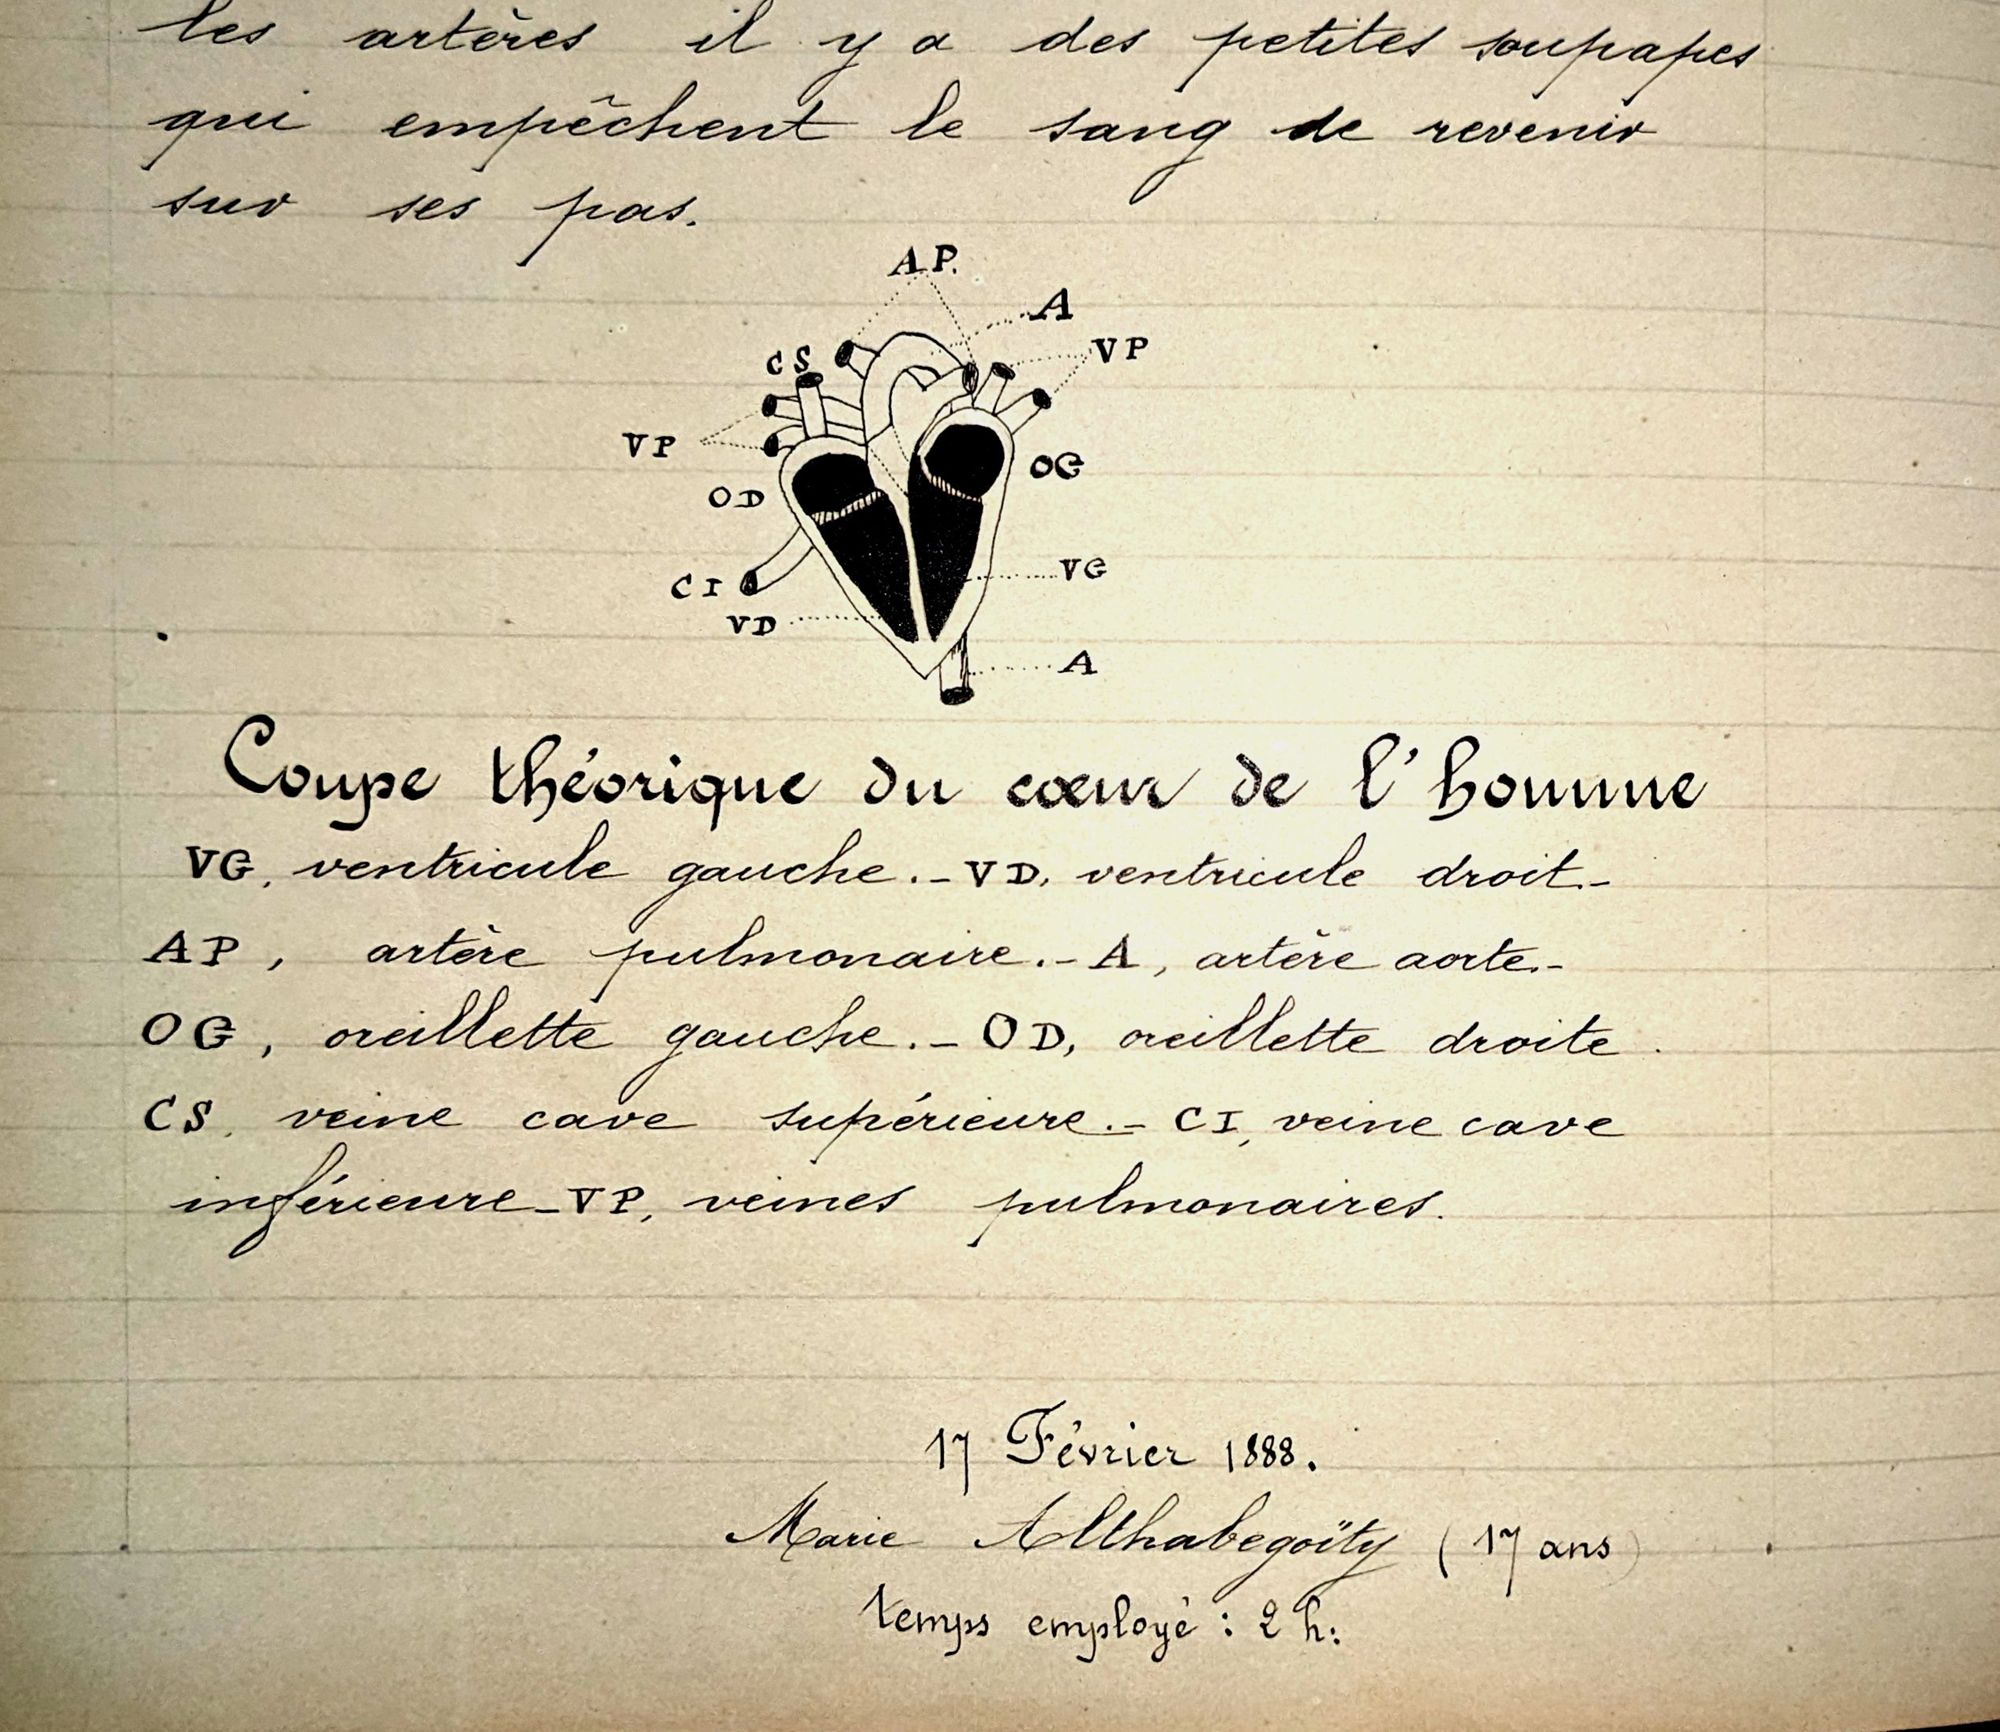 les artères il y a des petites soupapes
qui empêchent le sang de revenir
sur ses pas.
AP.
A
CS
VP
VP
OG
OD
VG
CI
VD
A
Coupe théorique du cœur de l'homme
VG, ventricule gauche.- VD, ventricule droit.-
AP, artère pulmonaire.- A, artère aorte.-
OG, oreillette gauche.- OD, oreillette droite.
CS, veine cave supérieure.- CI, veine cave
inférieure - VP, veines pulmonaires.
17 Février 1888.
Marie Althabegoïty (17 ans)
temps employé : 2 h.